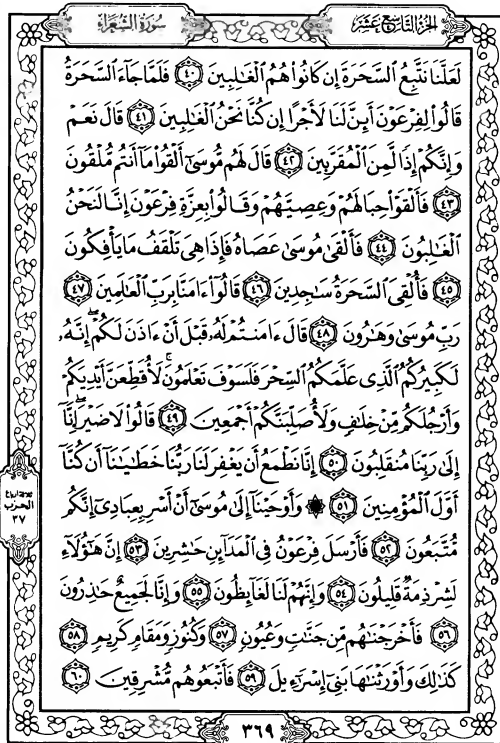 الجزء التاسع عشر
سورة الشعراء
لَعَلَّنَا نَتَّبِعُ السَّحَرَةَ إِن كَانُوا۟ هُمُ الْغَـٰلِبِينَ ٤٠ فَلَمَّا جَآءَ السَّحَرَةُ
قَالُوا۟ لِفِرْعَوْنَ أَئِنَّ لَنَا لَأَجْرًا إِن كُنَّا نَحْنُ الْغَـٰلِبِينَ ٤١ قَالَ نَعَمْ
وَإِنَّكُمْ إِذًا لَّمِنَ الْمُقَرَّبِينَ ٤٢ قَالَ لَهُم مُّوسَىٰٓ أَلْقُوا۟ مَآ أَنتُم مُّلْقُونَ
٤٣ فَأَلْقَوْا۟ حِبَالَهُمْ وَعِصِيَّهُمْ وَقَالُوا۟ بِعِزَّةِ فِرْعَوْنَ إِنَّا لَنَحْنُ
الْغَـٰلِبُونَ ٤٤ فَأَلْقَىٰ مُوسَىٰ عَصَاهُ فَإِذَا هِىَ تَلْقَفُ مَا يَأْفِكُونَ
٤٥ فَأُلْقِىَ السَّحَرَةُ سَـٰجِدِينَ ٤٦ قَالُوٓا۟ ءَامَنَّا بِرَبِّ الْعَـٰلَمِينَ ٤٧
رَبِّ مُوسَىٰ وَهَـٰرُونَ ٤٨ قَالَ ءَامَنتُمْ لَهُۥ قَبْلَ أَنْ ءَاذَنَ لَكُمْ ۖ إِنَّهُۥ
لَكَبِيرُكُمُ الَّذِى عَلَّمَكُمُ السِّحْرَ فَلَسَوْفَ تَعْلَمُونَ ۚ لَأُقَطِّعَنَّ أَيْدِيَكُمْ
وَأَرْجُلَكُم مِّنْ خِلَـٰفٍ وَلَأُصَلِّبَنَّكُمْ أَجْمَعِينَ ٤٩ قَالُوا۟ لَا ضَيْرَ ۖ إِنَّآ
إِلَىٰ رَبِّنَا مُنقَلِبُونَ ٥٠ إِنَّا نَطْمَعُ أَن يَغْفِرَ لَنَا رَبُّنَا خَطَـٰيَـٰنَآ أَن كُنَّآ
أَوَّلَ الْمُؤْمِنِينَ ٥١ ۞ وَأَوْحَيْنَآ إِلَىٰ مُوسَىٰٓ أَنْ أَسْرِ بِعِبَادِىٓ إِنَّكُم
مُّتَّبَعُونَ ٥٢ فَأَرْسَلَ فِرْعَوْنُ فِى الْمَدَآئِنِ حَـٰشِرِينَ ٥٣ إِنَّ هَـٰٓؤُلَآءِ
لَشِرْذِمَةٌ قَلِيلُونَ ٥٤ وَإِنَّهُمْ لَنَا لَغَآئِظُونَ ٥٥ وَإِنَّا لَجَمِيعٌ حَـٰذِرُونَ
٥٦ فَأَخْرَجْنَـٰهُم مِّن جَنَّـٰتٍ وَعُيُونٍ ٥٧ وَكُنُوزٍ وَمَقَامٍ كَرِيمٍ ٥٨
كَذَٰلِكَ وَأَوْرَثْنَـٰهَا بَنِىٓ إِسْرَٰٓءِيلَ ٥٩ فَأَتْبَعُوهُم مُّشْرِقِينَ ٦٠
ثلاثة أرباع
الحزب
٣٧
٣٦٩